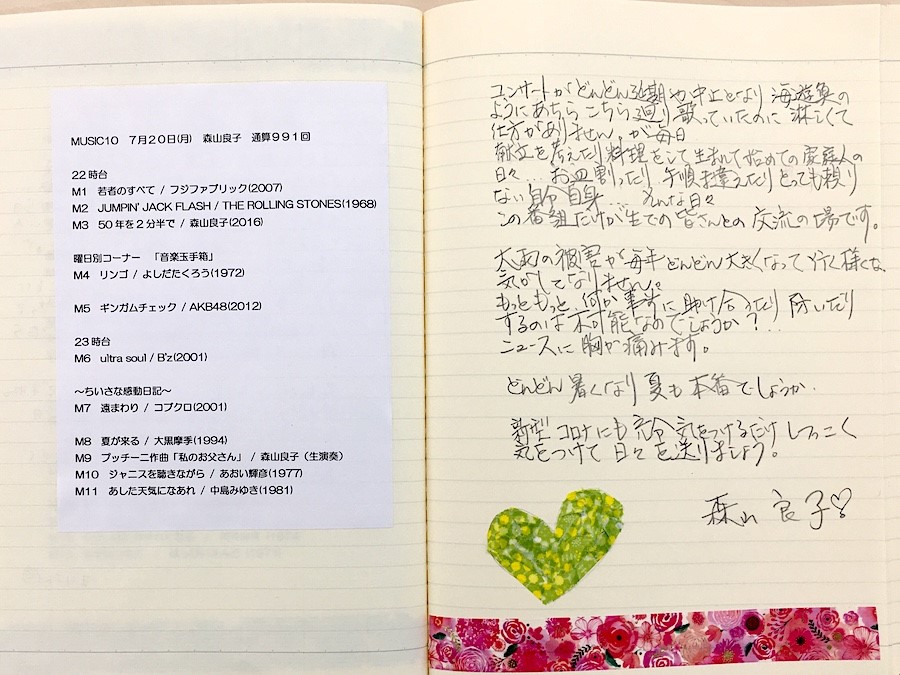 MUSIC10 7月20日(月) 森山良子 通算991回
22時台
M1 若者のすべて / フジファブリック(2007)
M2 JUMPIN' JACK FLASH / THE ROLLING STONES(1968)
M3 50年を2分半で / 森山良子(2016)
曜日別コーナー 「音楽玉手箱」
M4 リンゴ / よしだたくろう(1972)
M5 ギンガムチェック / AKB48(2012)
23時台
M6 ultra soul / B'z(2001)
～ちいさな感動日記～
M7 遠まわり / コブクロ(2001)
M8 夏が来る / 大黒摩季(1994)
M9 プッチーニ作曲「私のお父さん」 / 森山良子(生演奏)
M10 ジャニスを聴きながら / あおい輝彦(1977)
M11 あした天気になあれ / 中島みゆき(1981)
コンサートがどんどん延期や中止となり 海遊魚の
ようにあちらこちら廻り 歌っていたのに 淋しくて
仕方がありません。が毎日
献立を考えたり料理をして生まれて始めての家庭人の
日々… お皿割ったり、手順を違えたりとっても頼り
ない自分自身… そんな日々
この番組だけが生での皆さんとの交流の場です。
大雨の被害が毎年どんどん大きくなって行く様な
気がしてなりません。
もっともっと、何か事前に助け合ったり 防いだり
するのは不可能なのでしょうか?…
ニュースに胸が痛みます。
どんどん暑くなり夏も本番でしょうか.
新型コロナにも充分気をつけるだけしつこく
気をつけて日々を送りましょう。
森山良子♡